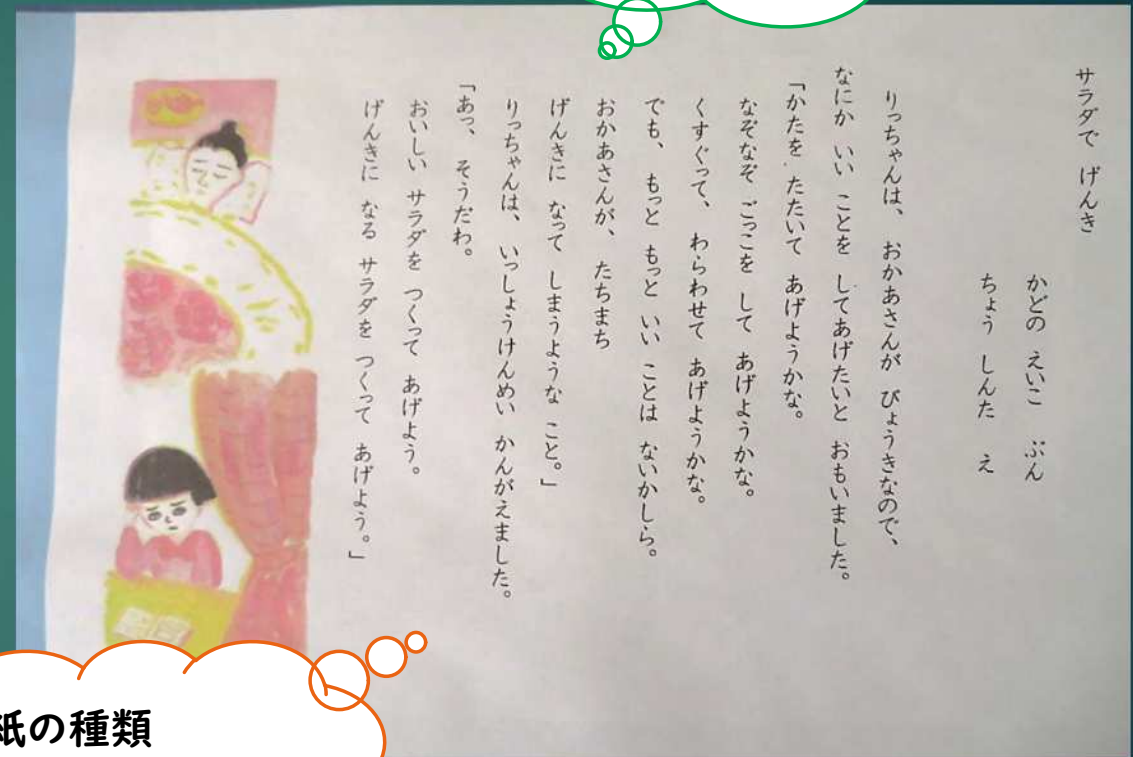 サラダで げんき
かどの えいこ ぶん
ちょう しんた え
りっちゃんは、 おかあさんが びょうきなので、
なにか いい ことを してあげたいと おもいました。
「かたを たたいて あげようかな。
なぞなぞ ごっこを して あげようかな。
くすぐって、 わらわせて あげようかな。
でも、 もっと もっと いい ことは ないかしら。
おかあさんが、 たちまち
げんきに なって しまうような こと。」
りっちゃんは、 いっしょうけんめい かんがえました。
「あっ、 そうだわ。
おいしい サラダを つくって あげよう。
げんきに なる サラダを つくって あげよう。」
紙の種類